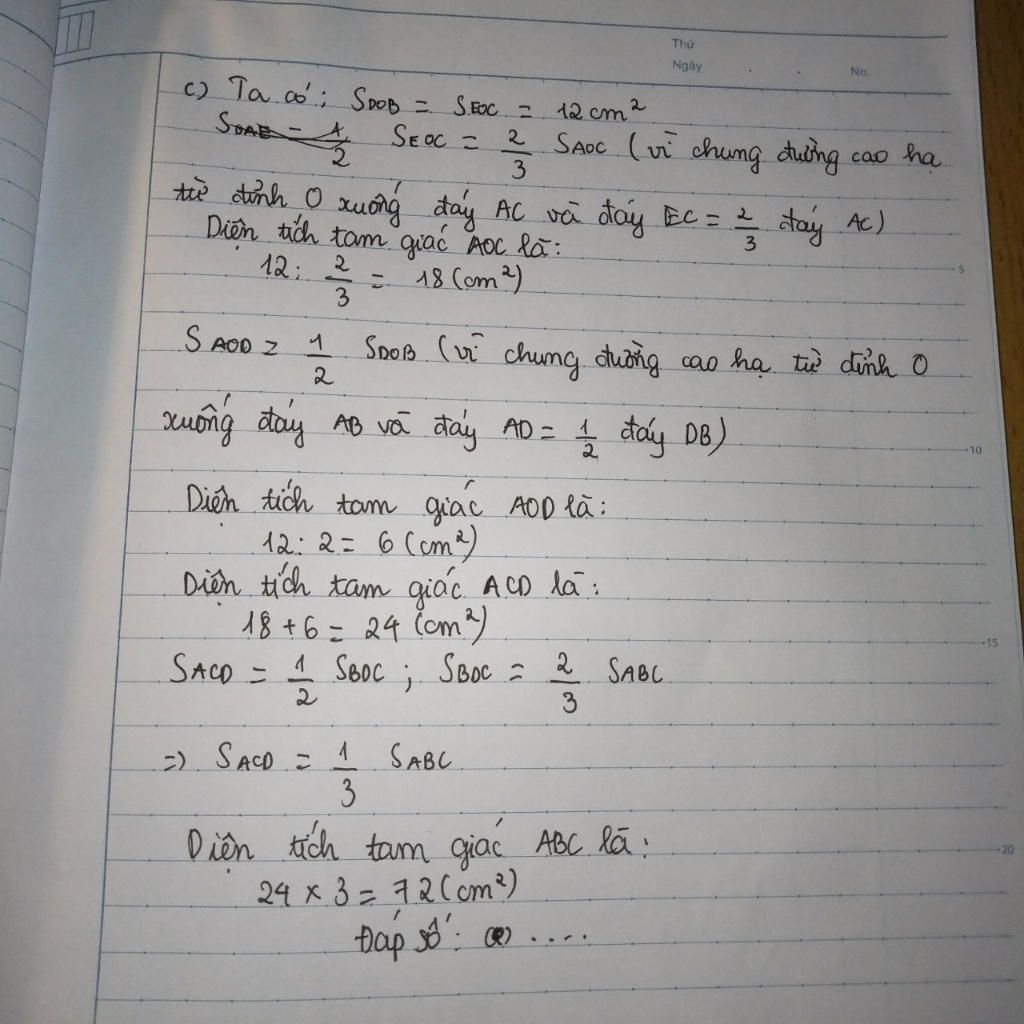 Thứ
Ngày . . No.
c) Ta có: SDOB = SEOC = 12cm²
SEOC = 2/3 SAOC (vì chung đường cao hạ
từ đỉnh O xuống đáy AC và đáy EC = 2/3 đáy AC)
Diện tích tam giác AOC là:
5
12 : 2/3 = 18 (cm²)
SAOD = 1/2 SDOB (vì chung đường cao hạ từ đỉnh O
xuống đáy AB và đáy AD = 1/2 đáy DB)
10
Diện tích tam giác AOD là:
12 : 2 = 6 (cm²)
Diện tích tam giác ACD là:
18 + 6 = 24 (cm²)
15
SACD = 1/2 SBDC ; SBDC = 2/3 SABC
=> SACD = 1/3 SABC
Diện tích tam giác ABC là:
20
24 × 3 = 72 (cm²)
Đáp số: ....